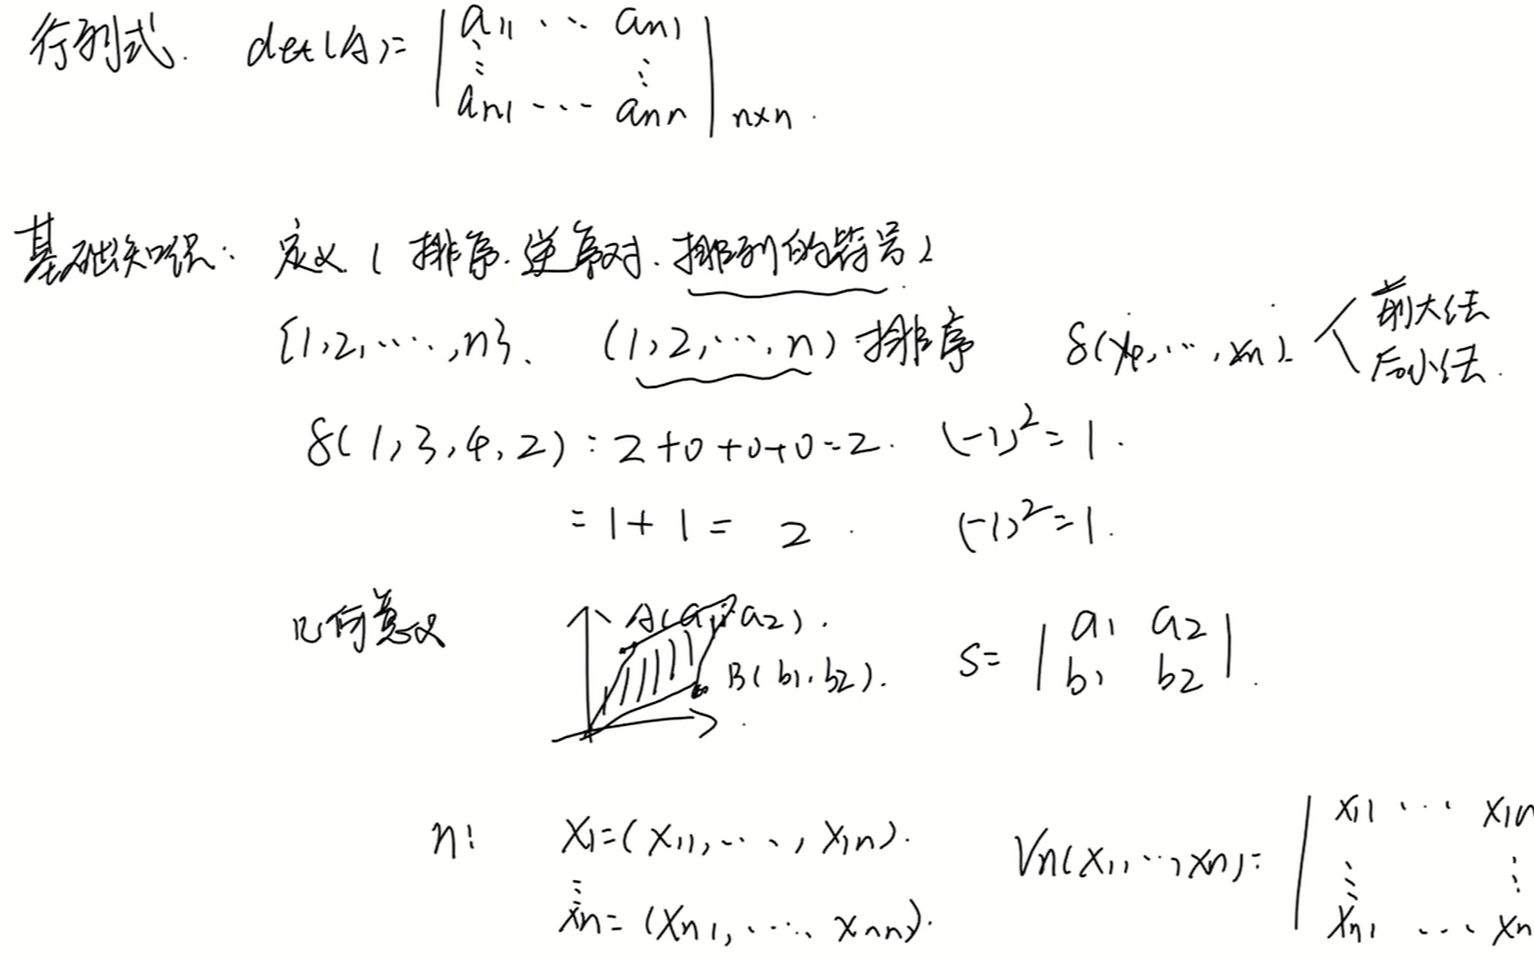 行列式. det(A)= | a11 ... an1
⋮ ⋮
an1 ... ann | n×n.
基础知识: 定义 ( 排序. 逆序对. 排列的符号 )
{1,2,...,n}. (1,2,...,n) 排序 δ(x1,...,xn). 前大法
后小法.
δ(1,3,4,2): 2+0+0+0=2. (-1)^2=1.
=1+1= 2. (-1)^2=1.
几何意义 A(a1,a2).
B(b1,b2). S= | a1 a2
b1 b2 |.
n: X1=(x11,...,x1n). Vn(x1,...,xn)= | x11 ... x1n
⋮ ⋮ ⋮
xn=(xn1,...,xnn). xn1 ... xn